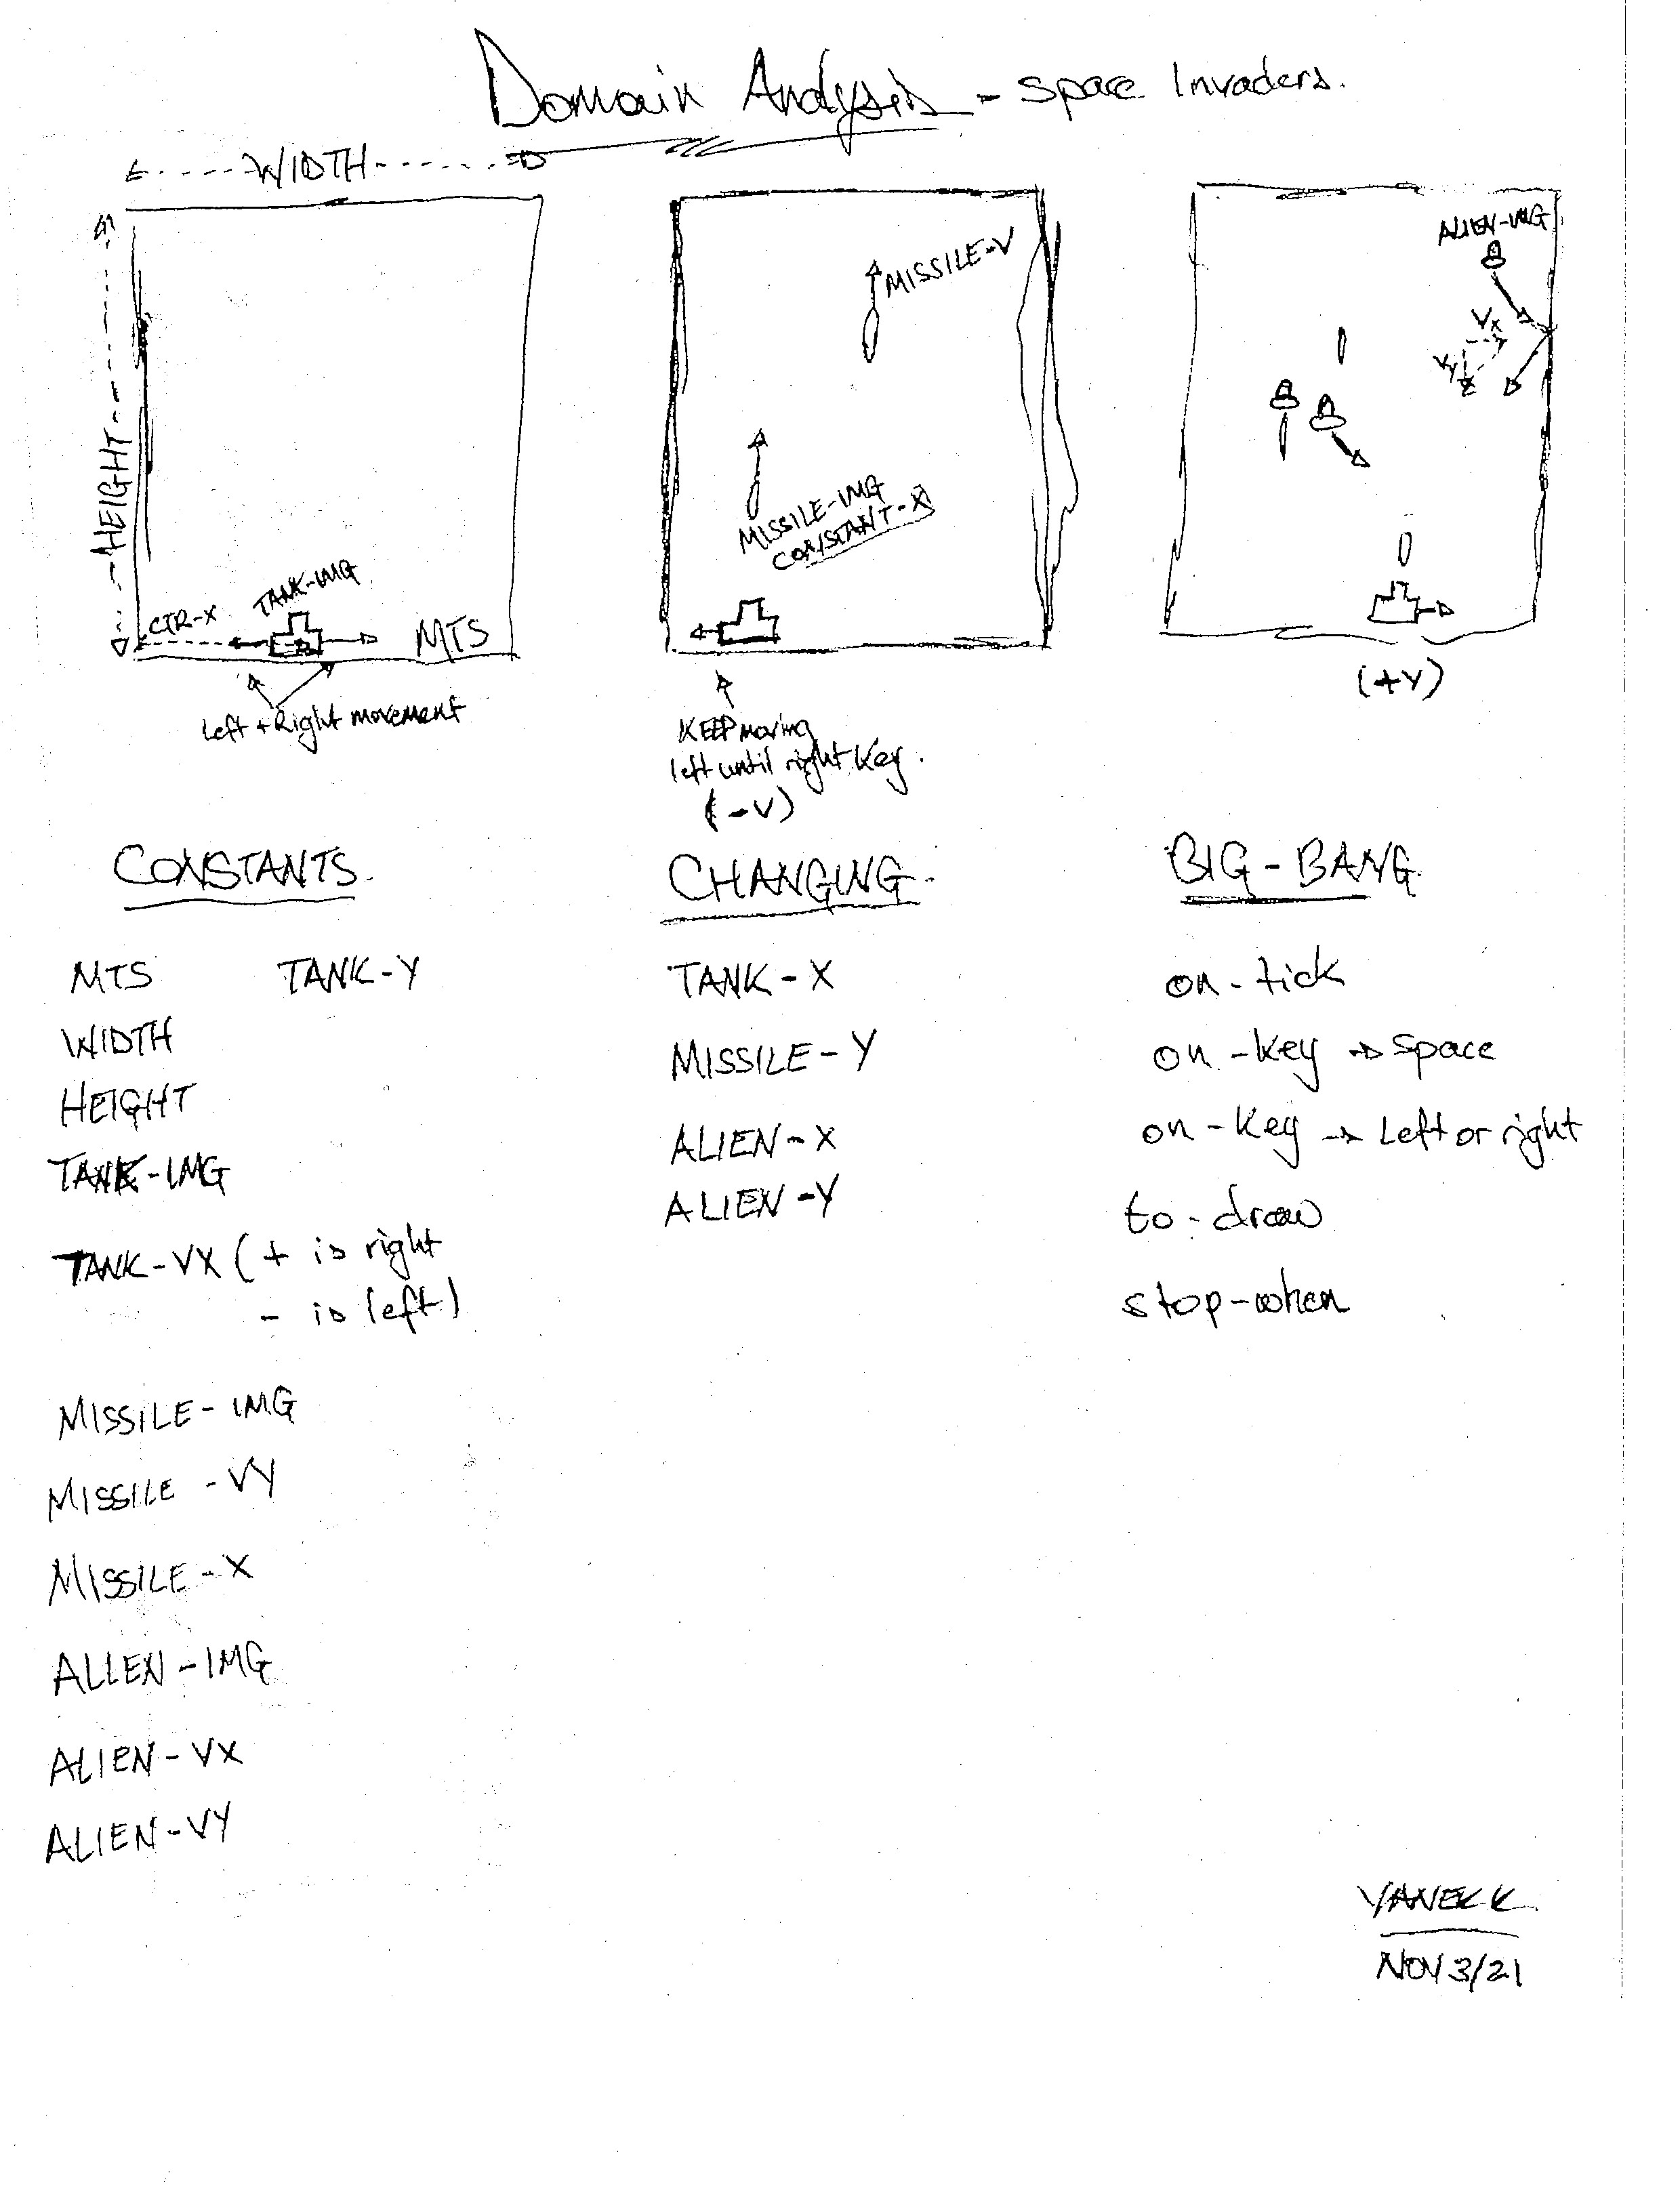 Domain Analysis - Space Invaders.
WIDTH
HEIGHT
CTR-X
TANK-IMG
MTS
Left + Right movement
MISSILE-V
MISSILE-IMG
CONSTANT-X
KEEP moving
left until right key.
(-V)
ALIEN-IMG
Vx
Vy
(+V)
CONSTANTS.
MTS TANK-Y
WIDTH
HEIGHT
TANK-IMG
TANK-VX (+ is right
- is left)
MISSILE-IMG
MISSILE-VY
MISSILE-X
ALIEN-IMG
ALIEN-VX
ALIEN-VY
CHANGING.
TANK-X
MISSILE-Y
ALIEN-X
ALIEN-Y
BIG-BANG
on-tick
on-key → space
on-key → Left or right
to-draw
stop-when
YANEK K.
NOV 3/21